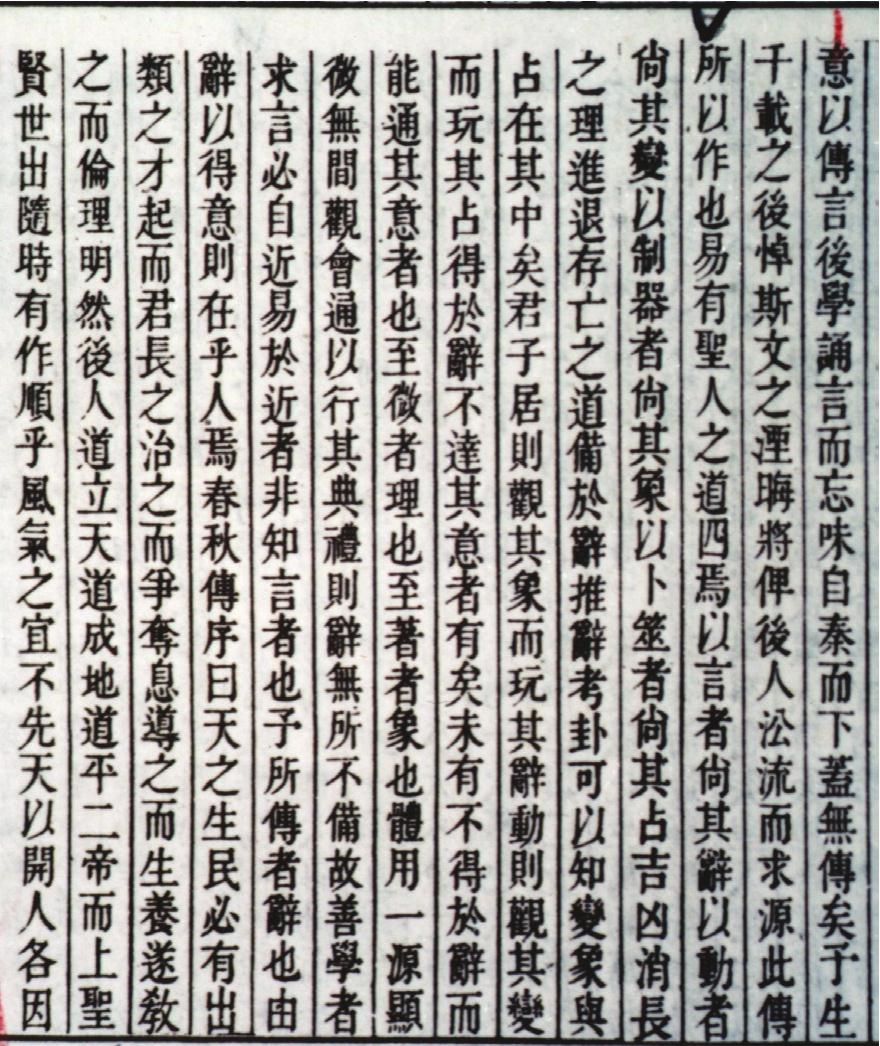 意以傳言後學誦言而忘味自秦而下蓋無傳矣予生
千載之後悼斯文之湮晦將俾後人㳂流而求源此傳
所以作也易有聖人之道四焉以言者尙其辭以動者
尙其變以制器者尙其象以卜筮者尙其占吉凶消長
之理進退存亡之道備於辭推辭考卦可以知變象與
占在其中矣君子居則觀其象而玩其辭動則觀其變
而玩其占得於辭不達其意者有矣未有不得於辭而
能通其意者也至微者理也至著者象也體用一源顯
微無間觀會通以行其典禮則辭無所不備故善學者
求言必自近易於近者非知言者也予所傳者辭也由
辭以得意則在乎人焉春秋傳序曰天之生民必有出
類之才起而君長之治之而爭奪息導之而生養遂敎
之而倫理明然後人道立天道成地道平二帝而上聖
賢世出隨時有作順乎風氣之宜不先天以開人各因